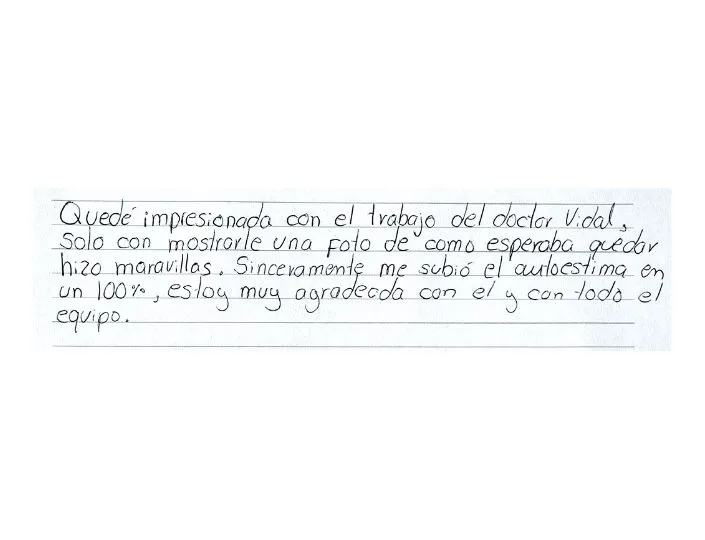 Quedé impresionada con el trabajo del doctor Vidal,
Solo con mostrarle una foto de como esperaba quedar
hizo maravillas. Sinceramente me subió el autoestima en
un 100%, estoy muy agradecida con el y con todo el
equipo.